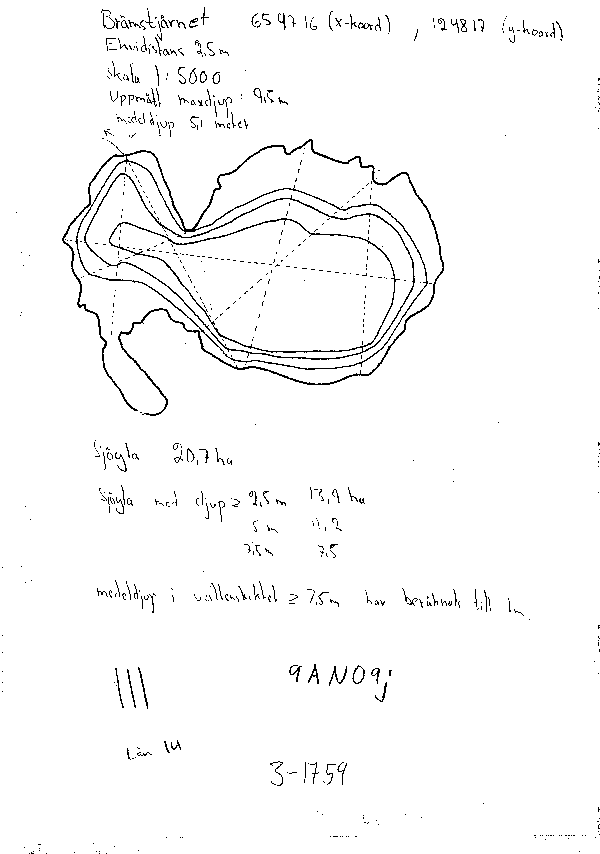 Brämstjärnet 659716 (x-koord) , 124817 (y-koord)
Ekvidistans 2,5 m
skala 1:5000
Uppmätt maxdjup: 9,5 m
medeldjup 5,1 meter
Sjöyta 20,7 ha
Sjöyta med djup ≥ 2,5 m 13,9 ha
5 m 11,2
7,5 m 7,5
medeldjup i vattenskiktet ≥ 7,5 m har beräknats till 1 m
9AN09j
Län
3-1759